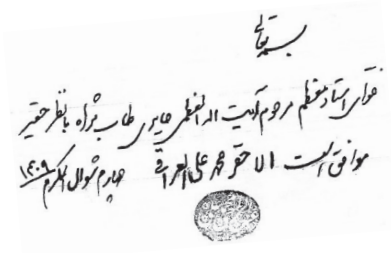 بسمه تعالی
فتوای استاد معظم مرحوم آیت الله العظمی حایری طاب ثراه با نظر حقیر
موافق است الاحقر محمد علی العراقی چهارم شوال المکرم ۱۴۰۹